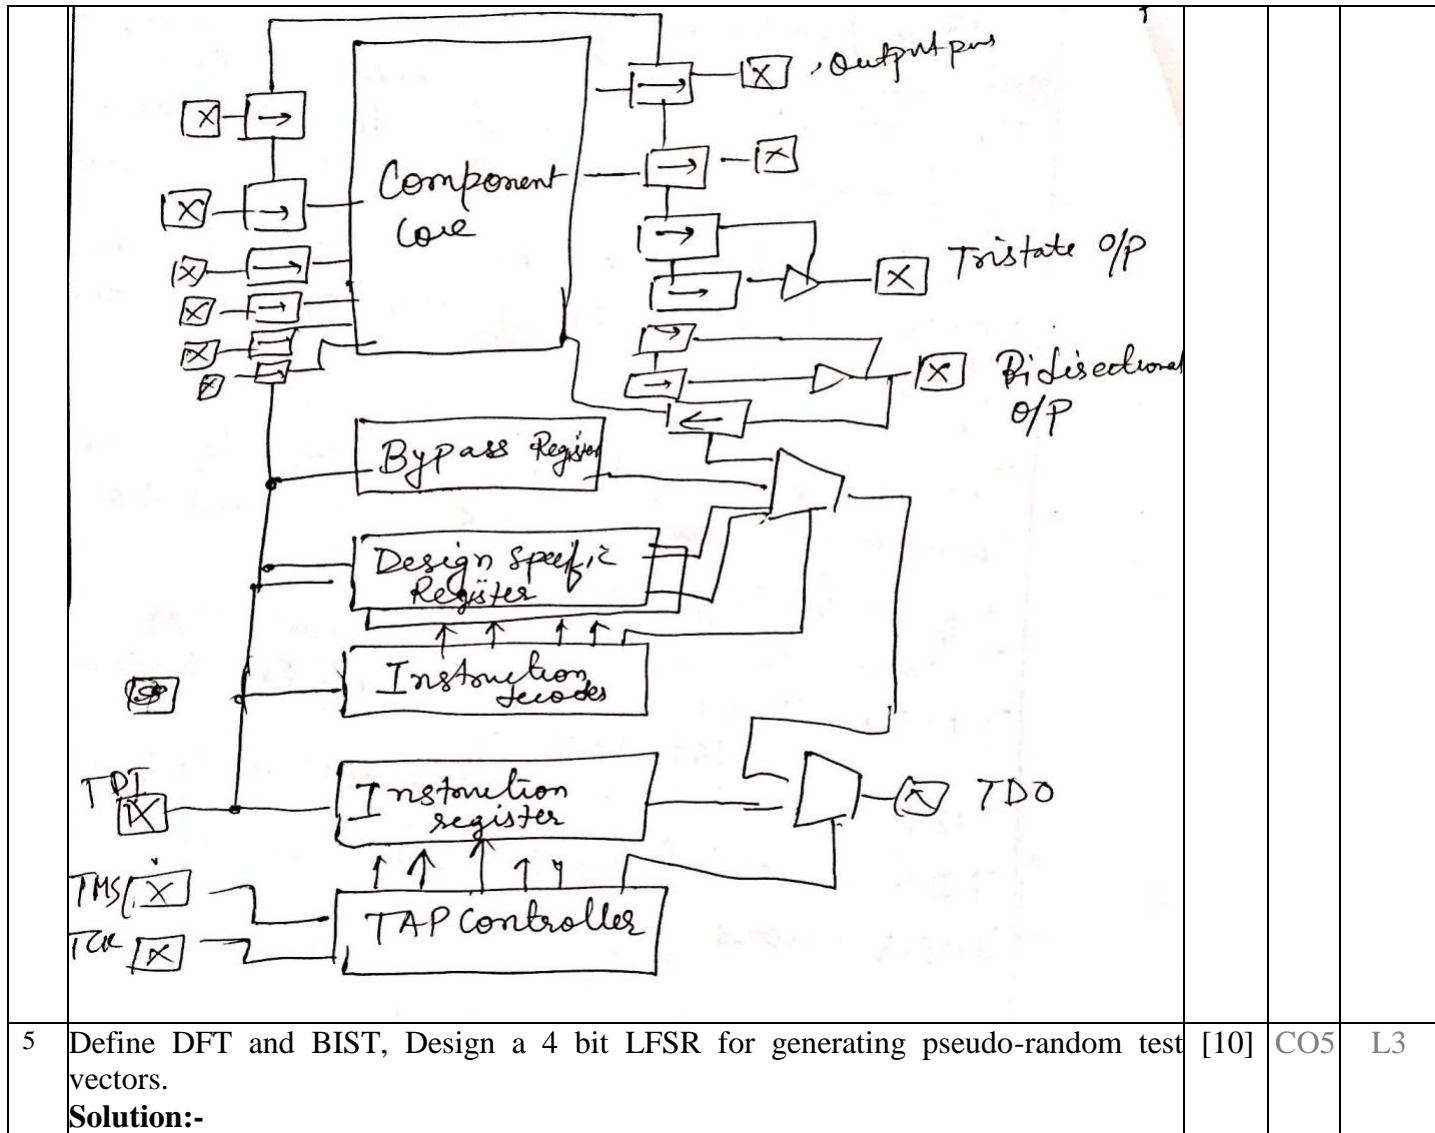 Output pins
Component
Core
Tristate O/P
Bidirectional
O/P
Bypass Register
Design Specific
Register
Instruction
decodes
TDI
Instruction
register
TDO
TMS
TCK
TAP Controller
5 Define DFT and BIST, Design a 4 bit LFSR for generating pseudo-random test [10] CO5 L3
vectors.
Solution:-